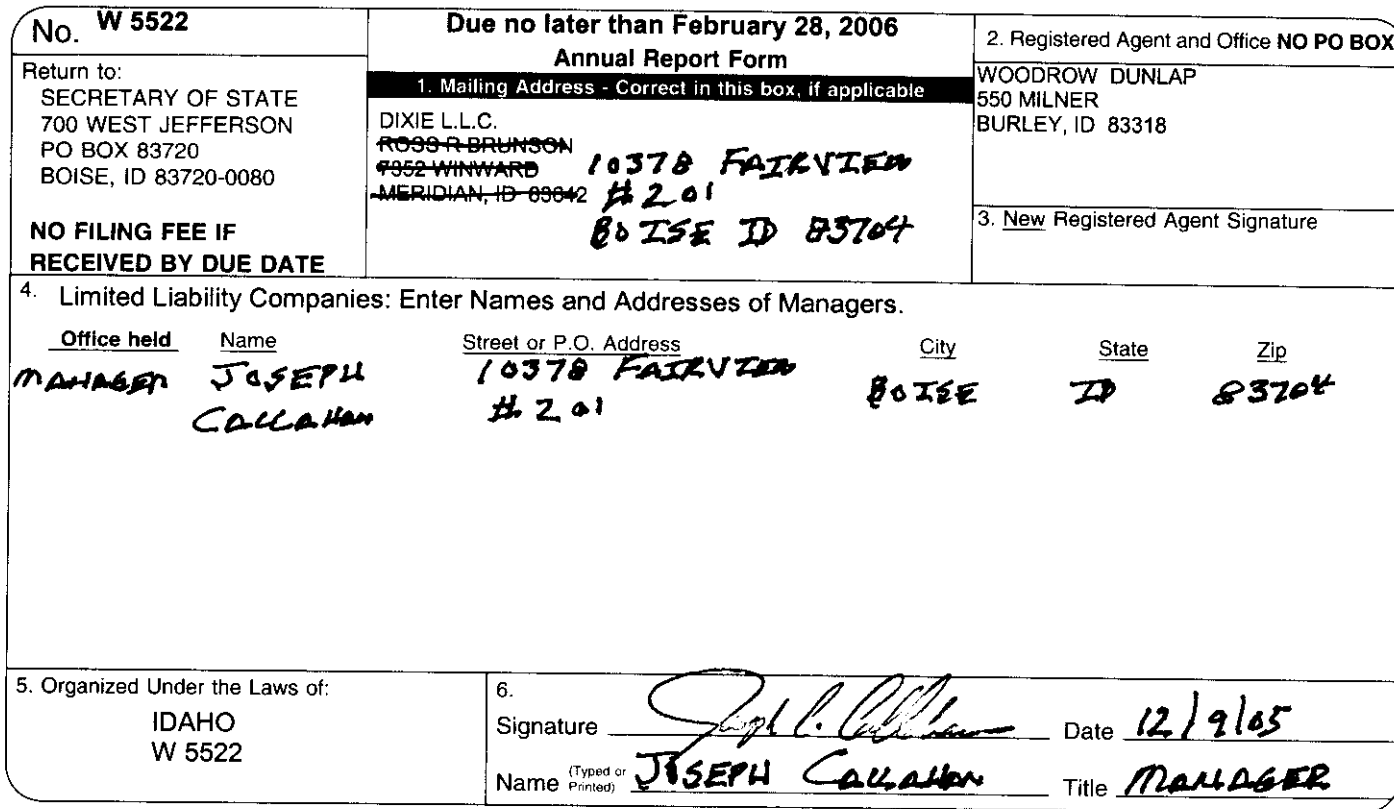 No. W 5522
Return to:
SECRETARY OF STATE
700 WEST JEFFERSON
PO BOX 83720
BOISE, ID 83720-0080
NO FILING FEE IF
RECEIVED BY DUE DATE
Due no later than February 28, 2006
Annual Report Form
1. Mailing Address - Correct in this box, if applicable
DIXIE L.L.C.
ROSS R BRUNSON
7352 WINWARD
MERIDIAN, ID 83642
10378 FAIRVIEW
# 201
BOISE ID 83704
2. Registered Agent and Office NO PO BOX
WOODROW DUNLAP
550 MILNER
BURLEY, ID 83318
3. New Registered Agent Signature
4. Limited Liability Companies: Enter Names and Addresses of Managers.
Office held Name Street or P.O. Address City State Zip
MANAGER JOSEPH 10378 FAIRVIEW BOISE ID 83704
CALLAHAN # 201
5. Organized Under the Laws of:
IDAHO
W 5522
6.
Signature Joseph C. Callahan Date 12/9/05
Name (Typed or Printed) JOSEPH CALLAHAN Title MANAGER